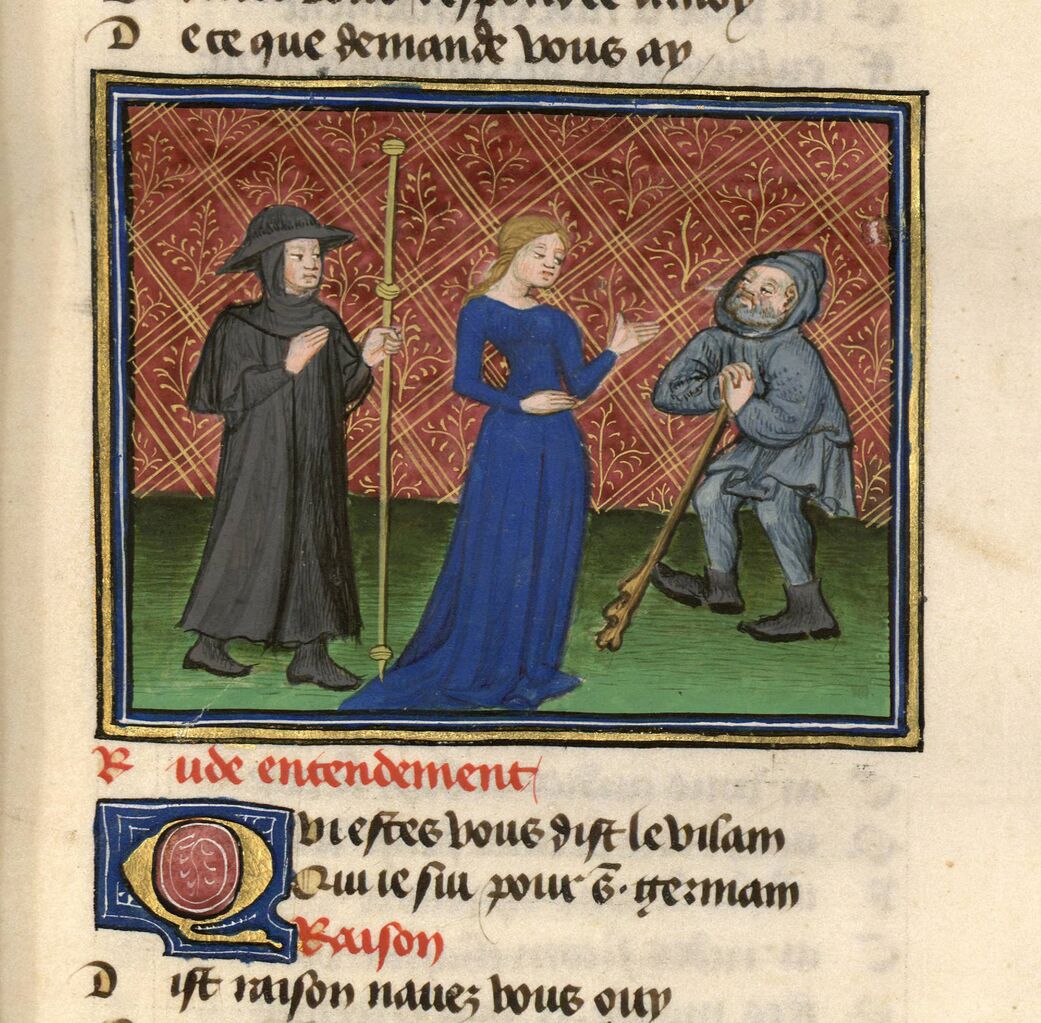 D e ce que demande vous ay
R ude entendement
Qui estes vous dist le vilain
Qui ie sui pour s. germain
Raison
D ist raison navez vous ouy